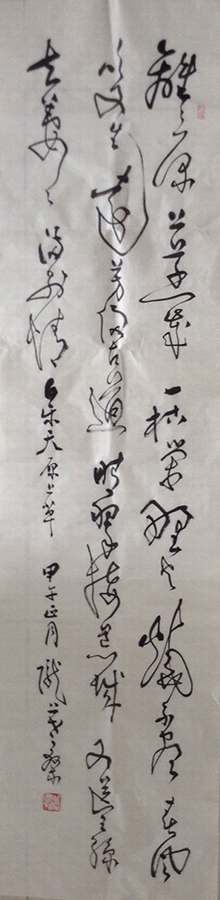 離々原上草一歲一枯榮野火燒不盡春風
吹又生遠芳侵古道晴翠接荒城又送王孫
去萋々滿別情白樂天原上草甲午正月隴